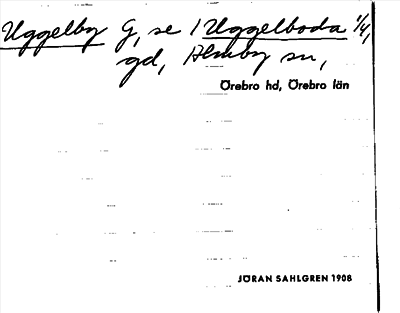 Uggelby G, se 1 Uggelboda 1/4,
gd, Almby sn,
Örebro hd, Örebro län
JÖRAN SAHLGREN 1908